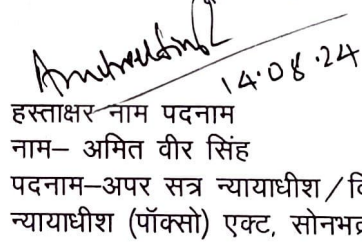 14.08.24
हस्ताक्षर नाम पदनाम
नाम– अमित वीर सिंह
पदनाम–अपर सत्र न्यायाधीश /
न्यायाधीश (पॉक्सो) एक्ट, सोनभद्र